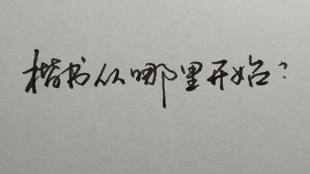 楷书从哪里开始?